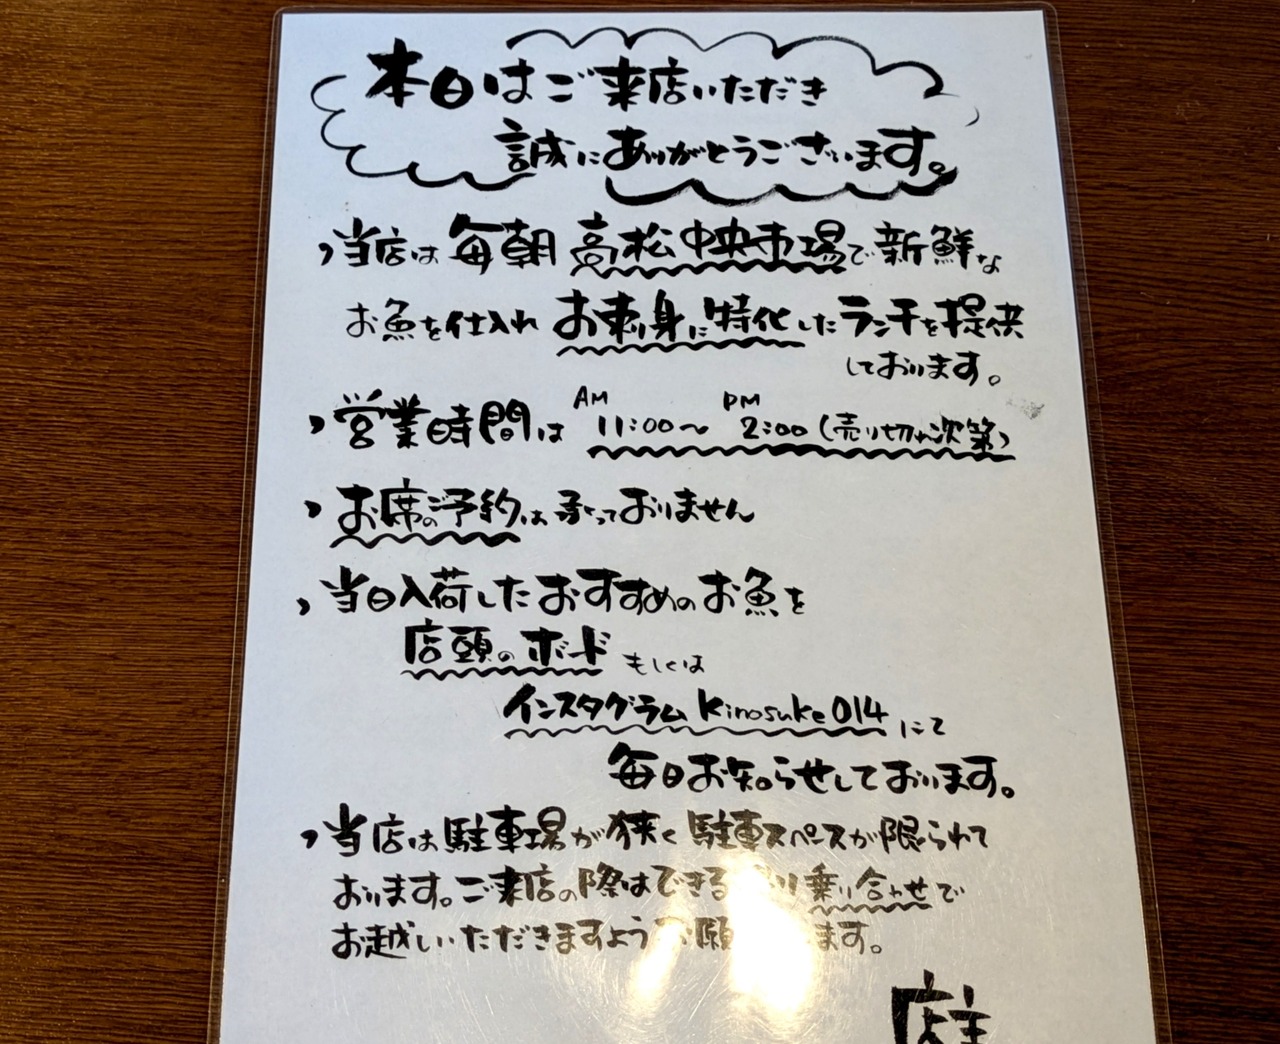 本日はご来店いただき
誠にありがとうございます。
、当店は毎朝高松中央市場で新鮮な
お魚を仕入れお刺身に特化したランチを提供
しております。
、営業時間は AM 11:00〜 PM 2:00(売り切れ次第)
、お席のご予約は承っておりません
、当日入荷したおすすめのお魚を
店頭のボード もしくは
インスタグラム Kinosuke014 にて
毎日お知らせしております。
、当店は駐車場が狭く駐車スペースが限られて
おります。ご来店の際はできる り乗り合わせで
お越しいただきますよう 願 ます。
店主